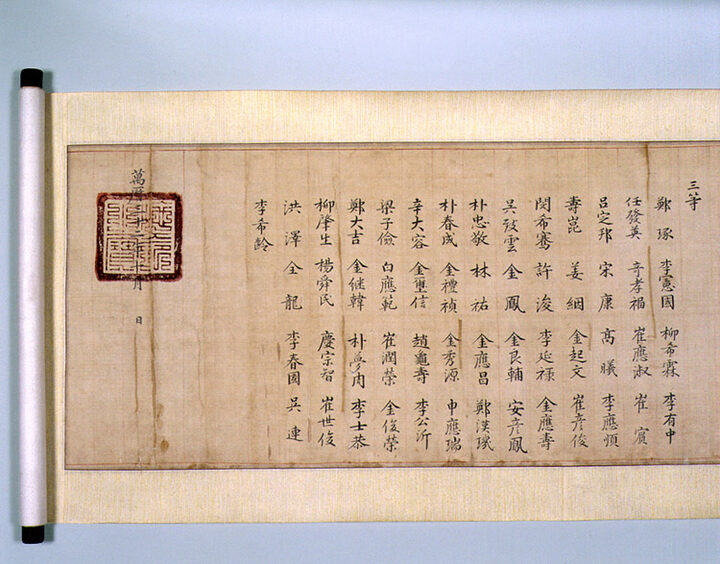 三等
鄭琢 李憲國 柳希霖 李有中
任發英 奇孝福 崔應淑 崔賓
呂定邦 宋康 高曦 李應順
壽崑 姜絪 金起文 崔彦俊
閔希騫 許浚 李延祿 金應壽
吳致雲 金鳳 金良輔 安彦鳳
朴忠敬 林祐 金應昌 鄭漢璣
朴春成 金禮禎 金秀源 申應瑞
辛大容 金璽信 趙龜壽 李公沂
梁子儉 白應範 崔潤榮 金俊榮
鄭大吉 金繼韓 朴夢 李士恭
柳肇生 楊舜民 慶宗智 崔世俊
洪澤 全龍 李春國 吳連
李希齡
萬曆 十 月 日